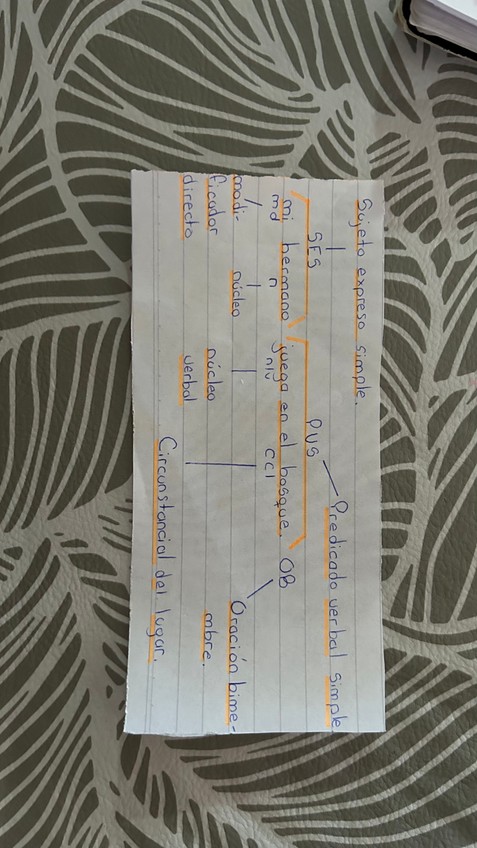 Sujeto expreso simple.
Predicado verbal simple
SES PVS
mi hermano juega en el bosque. OB
md n nv ccl
modi- núcleo núcleo Oración bime-
ficador verbal mbre.
directo
Circunstancial del lugar.